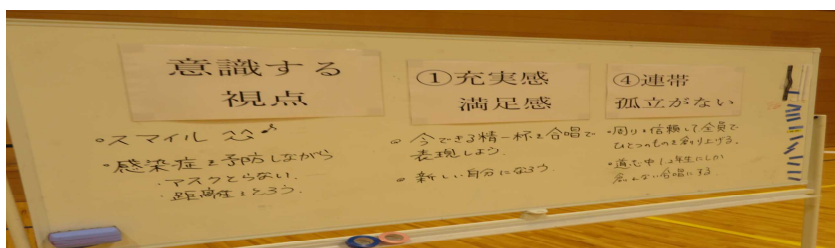 意識する
視点
・スマイル ^^♪
・感染症を予防しながら
・マスクとらない.
・距離をとろう.
①充実感
満足感
◎ 今できる精一杯を合唱で
表現しよう.
◎ 新しい自分になろう.
④連帯
孤立がない
・周りを信頼して全員で
ひとつのものを創り上げる。
・道志中1,2年生にしか
合唱にする